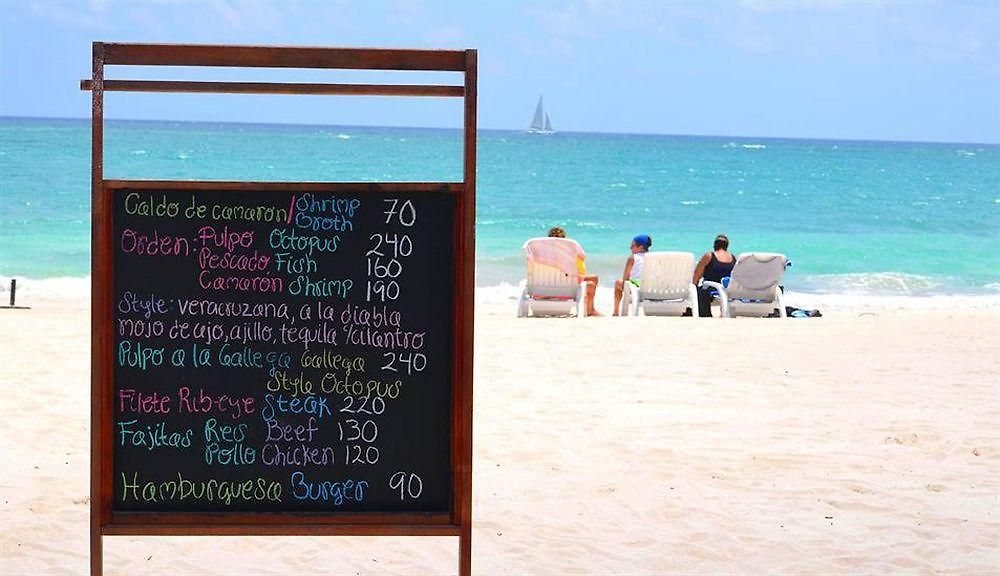 Caldo de camaron/Shrimp Broth 70
Orden: Pulpo Octopus 240
Pescado Fish 160
Camarón Shrimp 190
Style: veracruzana, a la diabla
mojo de ajo, ajillo, tequila y cilantro
Pulpo a la Gallega Gallega 240
Style Octopus
Filete Rib-eye Steak 220
Fajitas Res Beef 130
Pollo Chicken 120
Hamburguesa Burger 90